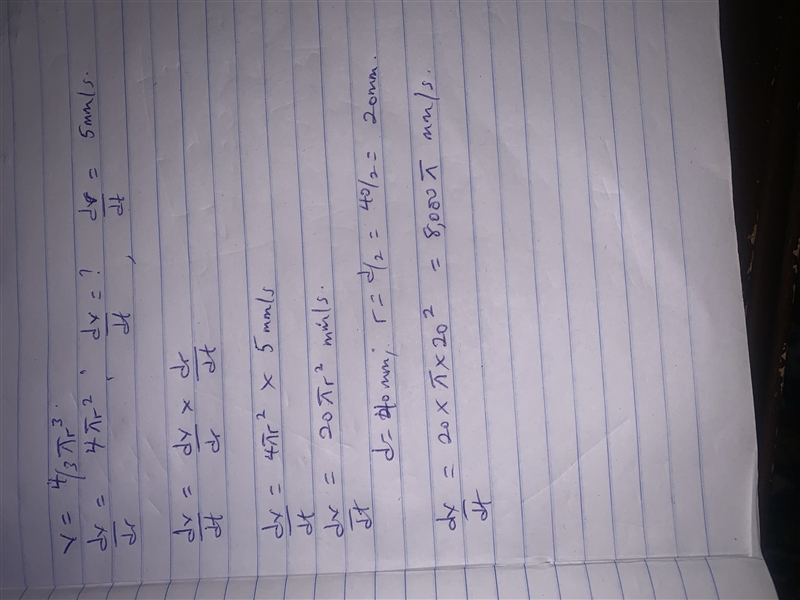 V = 4/3 πr³.
dv/dr = 4πr², dv/dt = ?, dr/dt = 5 mm/s.
dv/dt = dv/dr × dr/dt
dv/dt = 4πr² × 5 mm/s
dv/dt = 20πr² mm/s.
d = 40 mm; r = d/2 = 40/2 = 20mm.
dv/dt = 20 × π × 20² = 8,000π mm/s.